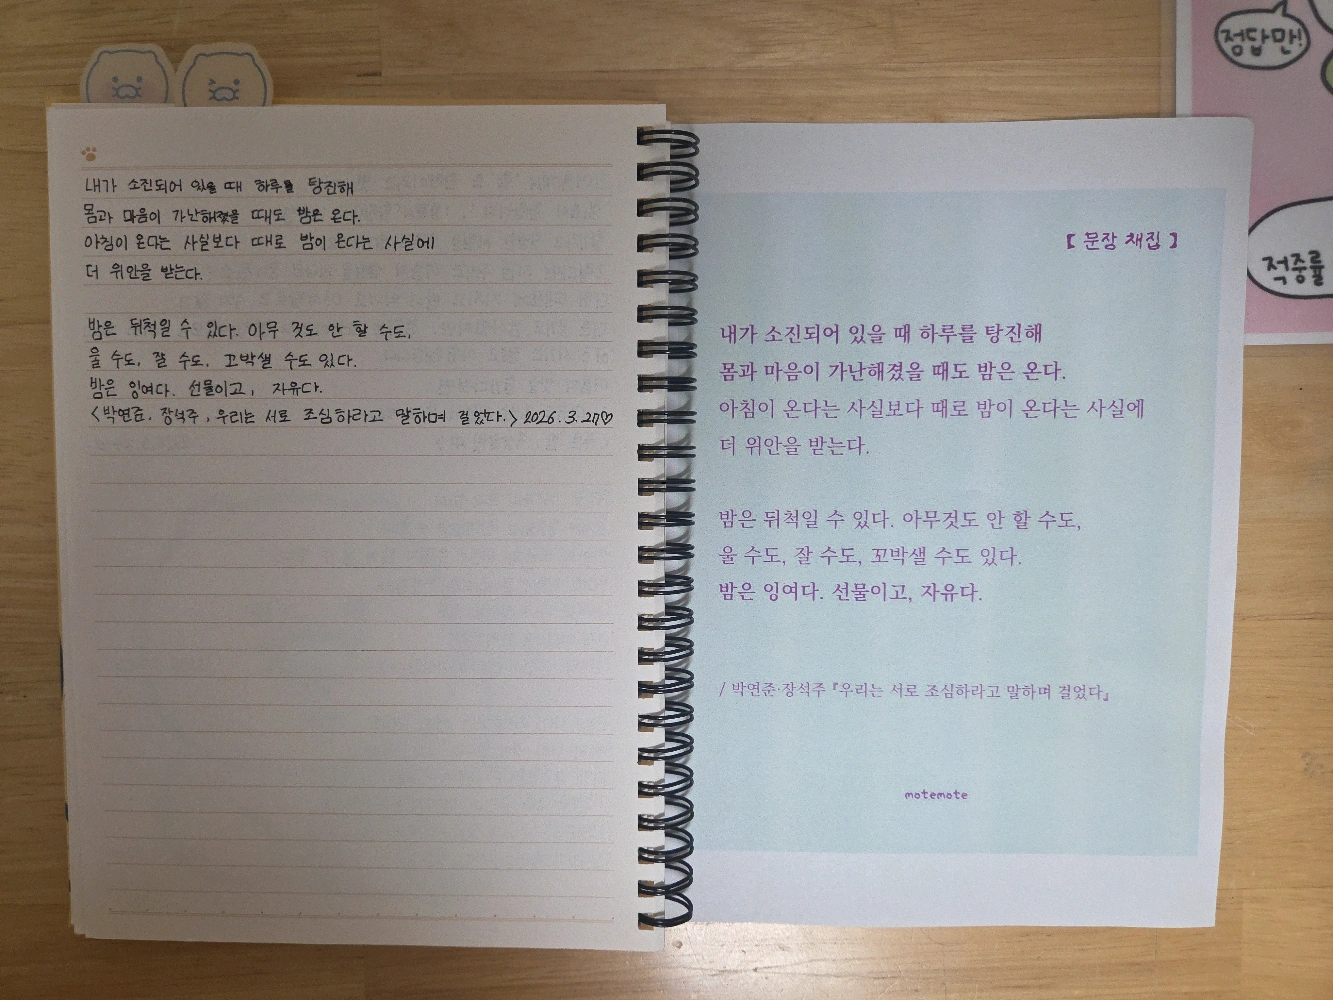 내가 소진되어 있을 때 하루를 탕진해
몸과 마음이 가난해졌을 때도 밤은 온다.
아침이 온다는 사실보다 때로 밤이 온다는 사실에
더 위안을 받는다.
밤은 뒤척일 수 있다. 아무 것도 안 할 수도,
울 수도, 잘 수도, 꼬박샐 수도 있다.
밤은 잉여다. 선물이고, 자유다.
<박연준. 장석주, 우리는 서로 조심하라고 말하며 걸었다.> 2026. 3. 27♡
【 문장 채집 】
내가 소진되어 있을 때 하루를 탕진해
몸과 마음이 가난해졌을 때도 밤은 온다.
아침이 온다는 사실보다 때로 밤이 온다는 사실에
더 위안을 받는다.
밤은 뒤척일 수 있다. 아무것도 안 할 수도,
울 수도, 잘 수도, 꼬박샐 수도 있다.
밤은 잉여다. 선물이고, 자유다.
/ 박연준·장석주 『우리는 서로 조심하라고 말하며 걸었다』
motemote
정답만!
적중률